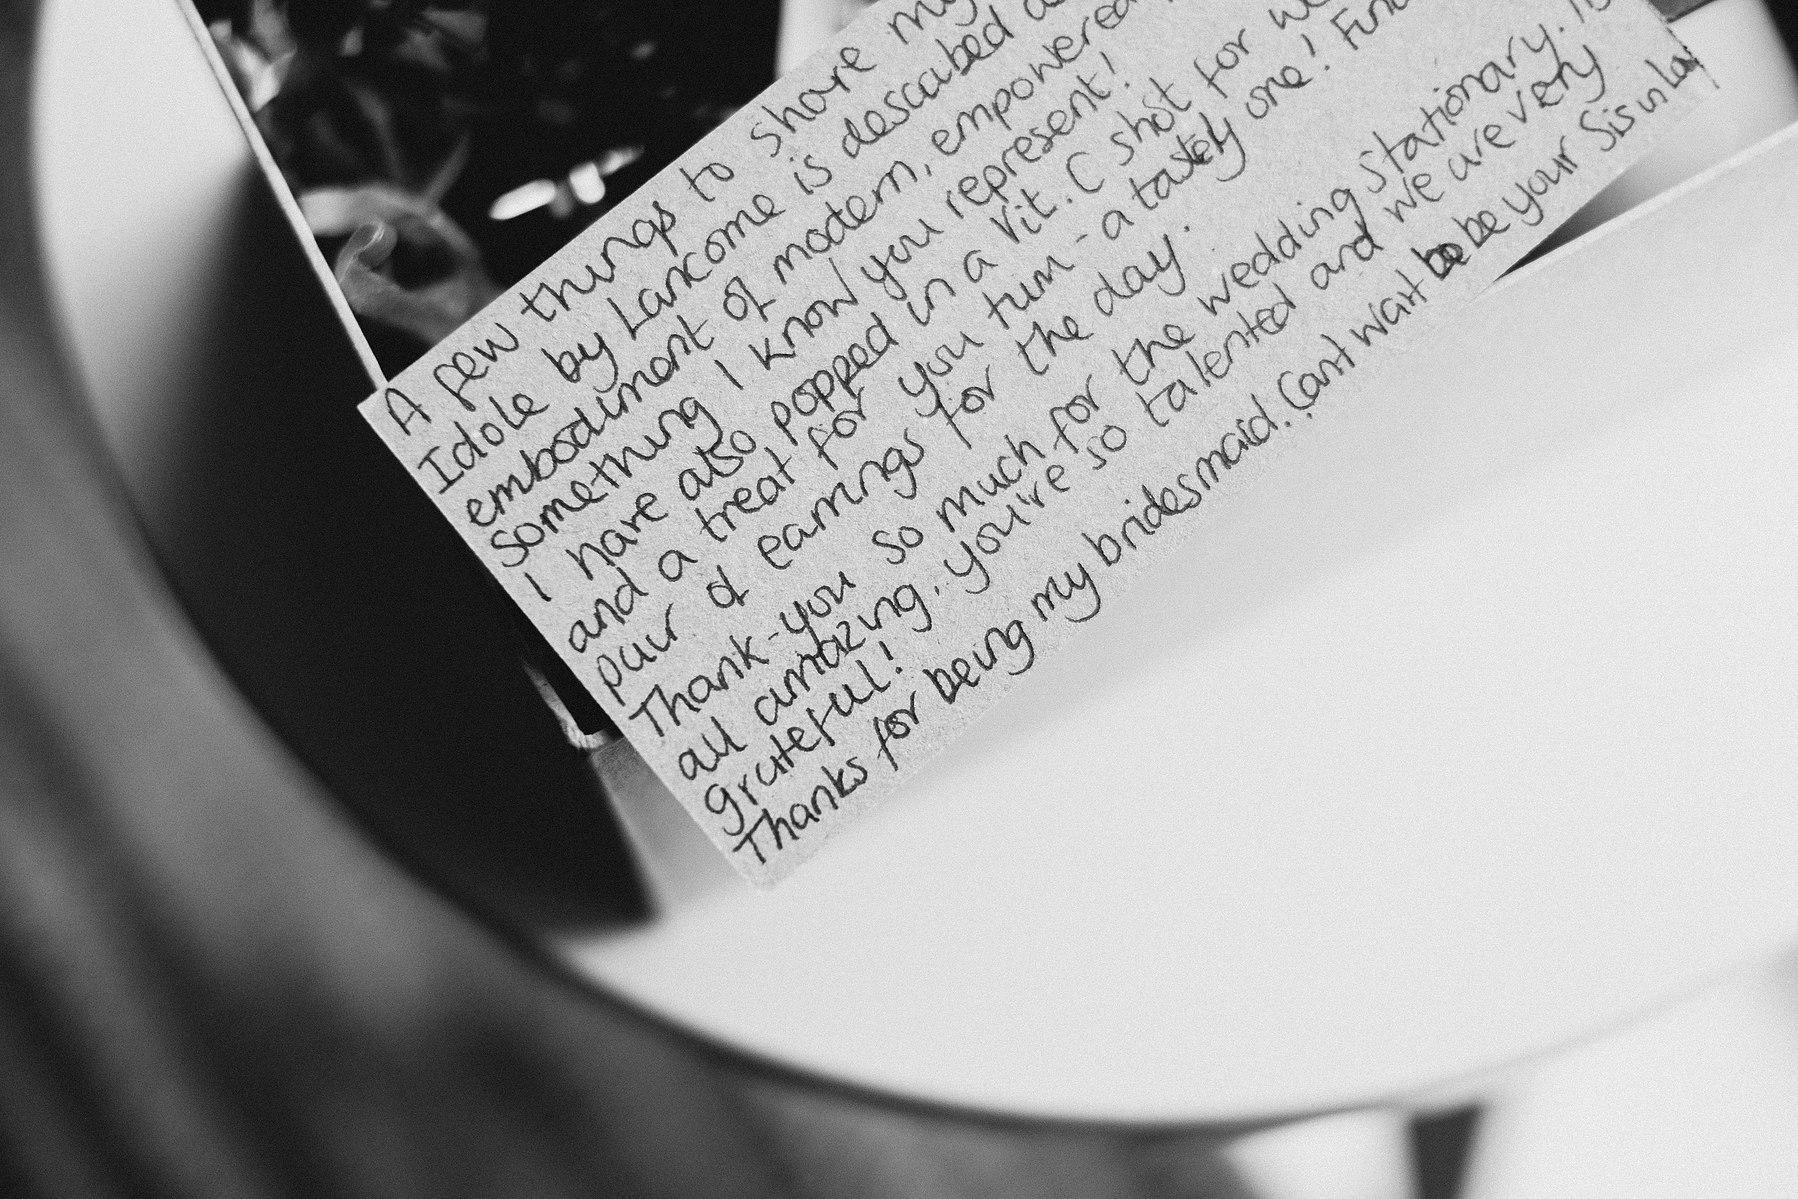 A few things to share my
Idole by Lancome is descubed
embodiment of modern, empowered
something I know you represent!
I have also popped in a Vit. C shot for
and a treat for you tum - a tastely one!
pair of earrings for the day.
Thank-you so much for the wedding stationary.
all amazing, you're so talented and we are very
grateful!
Thanks for being my bridesmaid. Cant wait to be your Sis in law